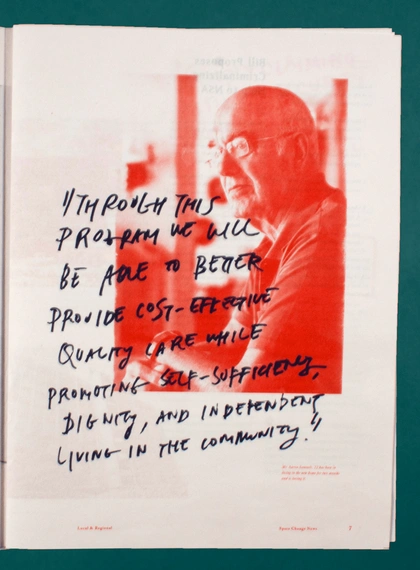 "THROUGH THIS
PROGRAM WE WILL
BE ABLE TO BETTER
PROVIDE COST-EFFECTIVE
QUALITY CARE WHILE
PROMOTING SELF-SUFFICIENCY,
DIGNITY, AND INDEPENDENT
LIVING IN THE COMMUNITY."
Local & Regional
Spare Change News
7